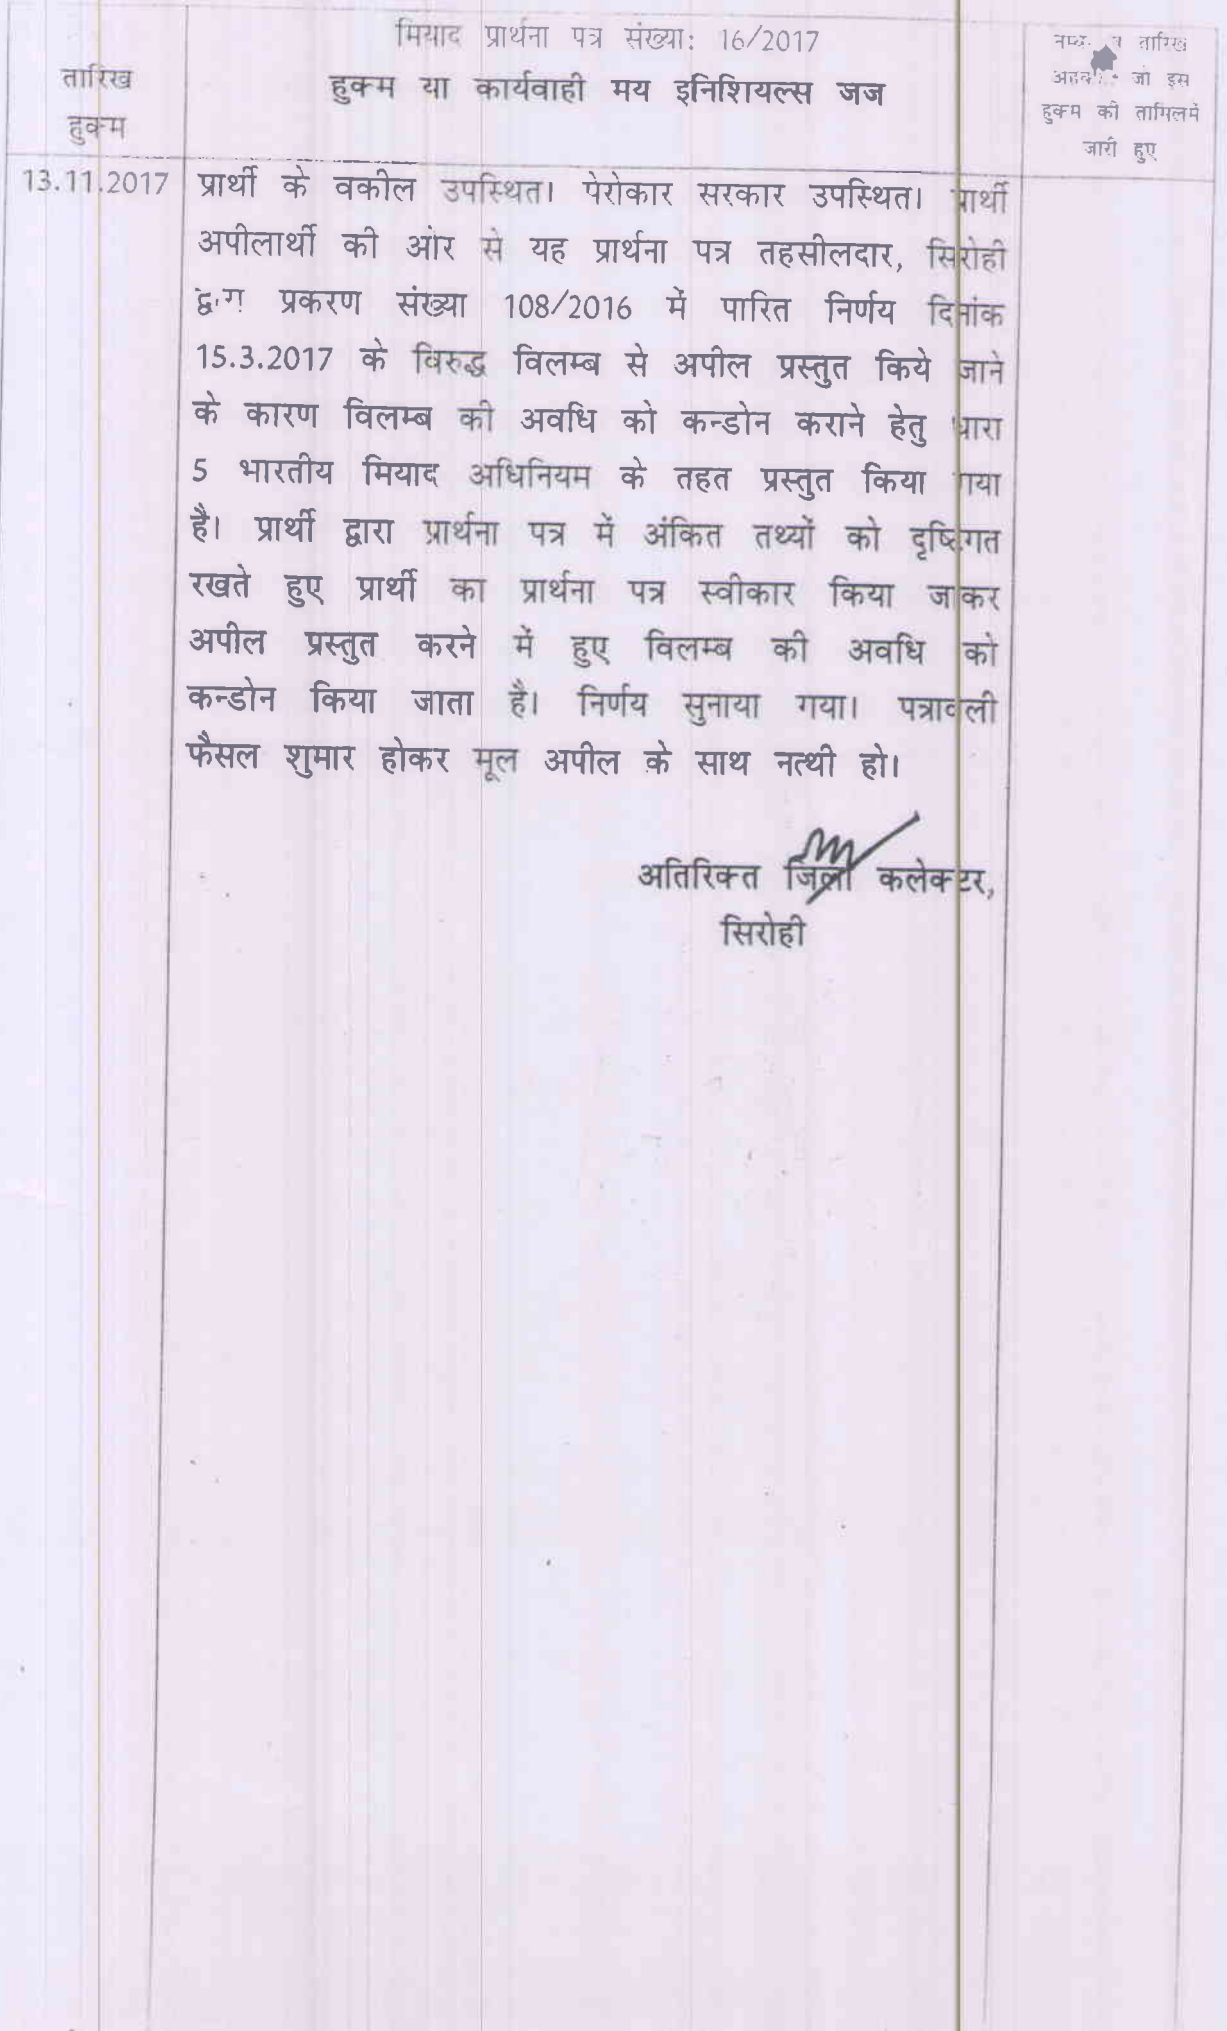 मियाद प्रार्थना पत्र संख्या: 16/2017
तारिख
हुक्म
हुक्म या कार्यवाही मय इनिशियल्स जज
तारिख
जो इस
हुक्म की तामिलमें
जारी हुए
13.11.2017
प्रार्थी के वकील उपस्थित। पेरोकार सरकार उपस्थित। प्रार्थी
अपीलार्थी की ओर से यह प्रार्थना पत्र तहसीलदार, सिरोही
द्वारा प्रकरण संख्या 108/2016 में पारित निर्णय दिनांक
15.3.2017 के विरुद्ध विलम्ब से अपील प्रस्तुत किये जाने
के कारण विलम्ब की अवधि को कन्डोन कराने हेतु धारा
5 भारतीय मियाद अधिनियम के तहत प्रस्तुत किया गया
है। प्रार्थी द्वारा प्रार्थना पत्र में अंकित तथ्यों को दृष्टिगत
रखते हुए प्रार्थी का प्रार्थना पत्र स्वीकार किया जाकर
अपील प्रस्तुत करने में हुए विलम्ब की अवधि को
कन्डोन किया जाता है। निर्णय सुनाया गया। पत्रावली
फैसल शुमार होकर मूल अपील के साथ नत्थी हो।
अतिरिक्त जिला कलेक्टर,
सिरोही